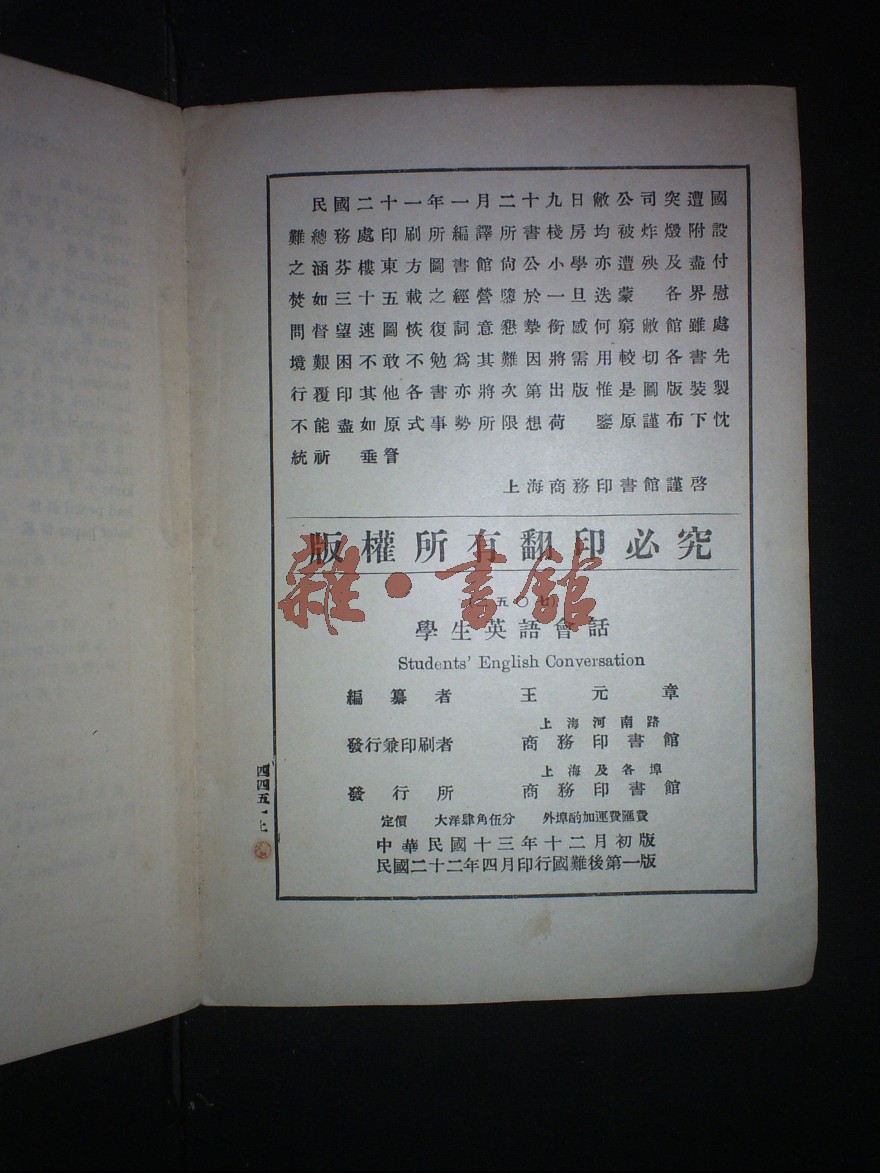 民國二十一年一月二十九日敝公司突遭國
難總務處印刷所編譯所書棧房均被炸燬附設
之涵芬樓東方圖書館尙公小學亦遭殃及盡付
焚如三十五載之經營隳於一旦迭蒙 各界慰
問督望速圖恢復詞意懇摯銜感何窮敝館雖處
境艱困不敢不勉爲其難因將需用較切各書先
行覆印其他各書亦將次第出版惟是圖版裝製
不能盡如原式事勢所限想荷 鑒原謹布下忱
統祈 垂詧
上海商務印書館謹啓
版權所有翻印必究
雜·書館
五〇七
學生英語會話
Students' English Conversation
編纂者 王元章
發行兼印刷者 上海河南路 商務印書館
發行所 上海及各埠 商務印書館
定價 大洋肆角伍分 外埠酌加運費匯費
中華民國十三年十二月初版
民國二十二年四月印行國難後第一版
四四五一上
lead pencil